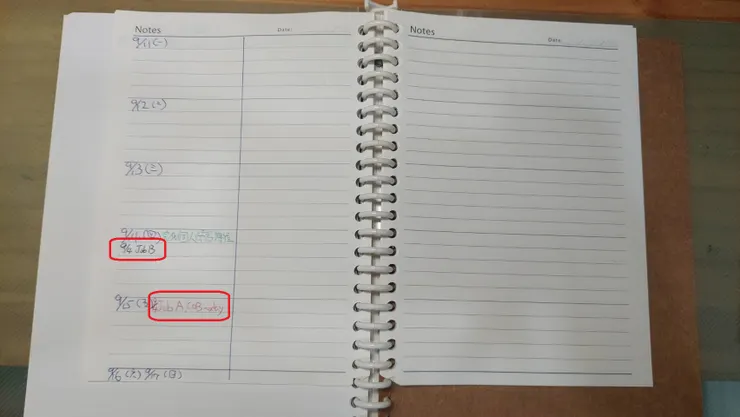 Notes
Date:
9/11 (一)
9/12 (二)
9/13 (三)
9/14 (四)
9/4 Job B
9/15 (五) Job A
9/16 (六) 9/17 (日)
Notes
Date: